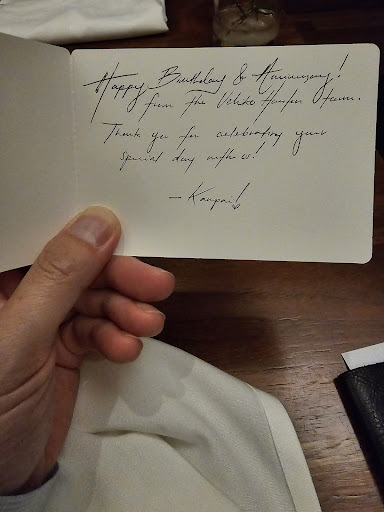 Happy Birthday & Anniversary!
from The Uchiko Houston Team.
Thank you for celebrating your
special day with us!
— Kanpai!